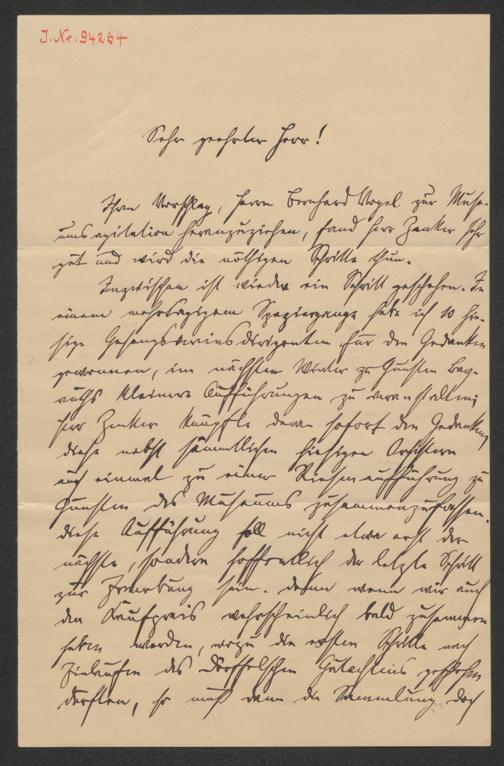 J. Nr. 94264
Sehr geehrter Herr!
Ihren Vorschlag, Herrn Bernhard Vogel zur Muse-
umsagitation heranzuziehen, fand Herr Zenker sehr
gut und wird die nöthigen Schritte thun.
Inzwischen ist wieder ein Schritt geschehen. In
einem Spaziergange habe ich 10 hie-
sige Gesangvereinsdirigenten für den Gedanken
gewonnen, im nächsten Winter zu Gunsten Bay-
reuths kleinere Aufführungen zu veranstalten;
Herr Zenker knüpfte daran sofort den Gedanken,
diese nebst sämmtlichen hiesigen
auch einmal zu einer Riesenaufführung zu
Gunsten des Museums zusammenzufassen.
Diese Aufführung soll nicht etwa erst der
nächste, sondern hoffentlich der letzte Schritt
zur Erwerbung sein. Denn wenn wir auch
den Kaufpreis wahrscheinlich bald zusammen
haben werden, wozu die ersten Schritte nach
Einlaufen des Gutachtens geschehen
dürften, so muß dann die Sammlung doch